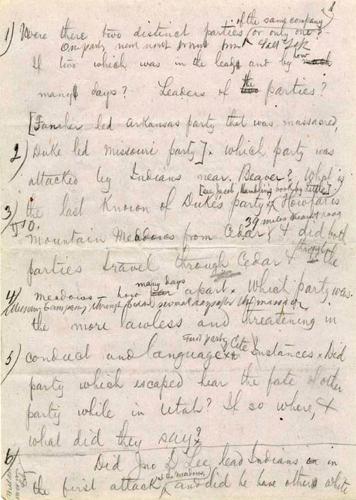 of the same company
1) Were there two distinct parties or only one?
One party went north from Salt Lak
If two which was in the lead and by how
many days? Leaders of parties?
[Fancher led Arkansas party that was massacred
2) Duke led Missouri party]. Which party was
attacked by Indians near Beaver? What is
[see Jacob Hamblin book by Little]
3) the last known of Dukes party & How far is
39 miles
Mountain Meadows from Cedar & did both
throughout
parties travel through Cedar & the
many days
4) meadows - how apart. Which party was
the more lawless and threatening in
first party
5) conduct and language & Cite Instances. Did
party which escaped hear the fate of other
party while in Utah? If so where, &
what did they say?
6) Did Jno D Lee lead Indians in
at the meadows
the first attack, and did he have others white